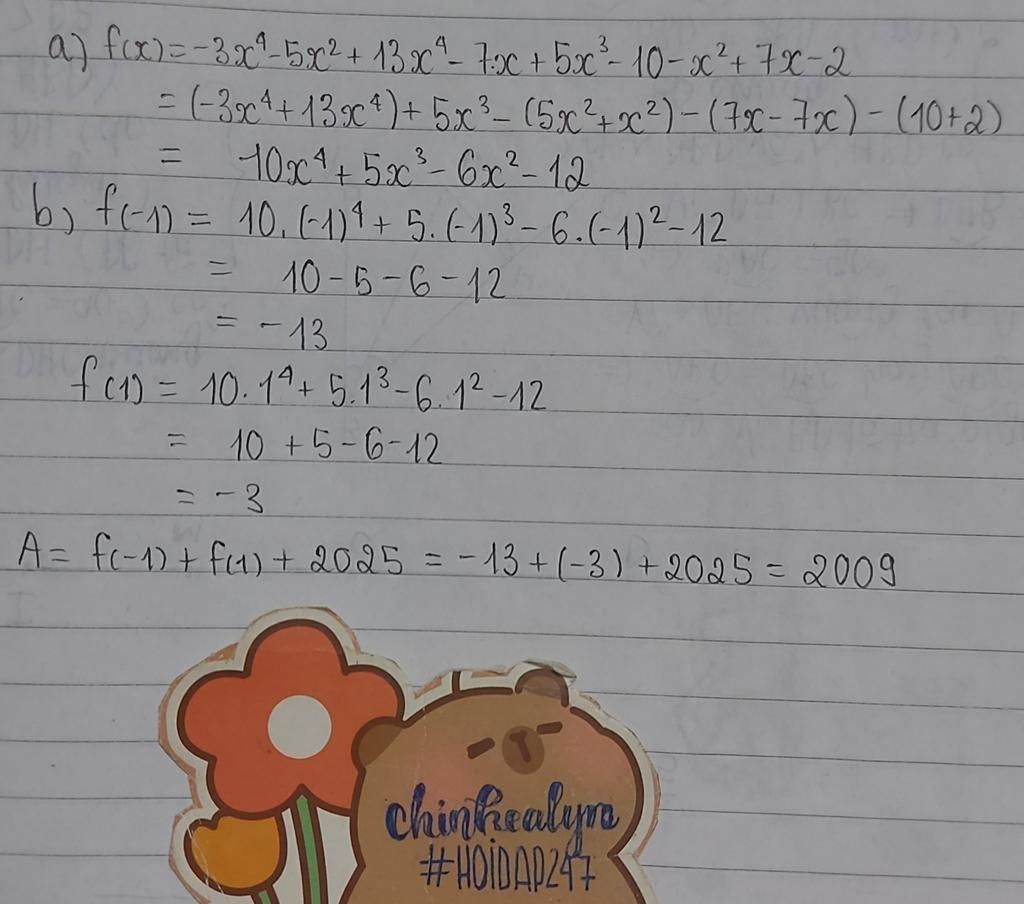 a) f(x) = -3x⁴ - 5x² + 13x⁴ - 7x + 5x³ - 10 - x² + 7x - 2
= (-3x⁴ + 13x⁴) + 5x³ - (5x² + x²) - (7x - 7x) - (10 + 2)
= 10x⁴ + 5x³ - 6x² - 12
b) f(-1) = 10.(-1)⁴ + 5.(-1)³ - 6.(-1)² - 12
= 10 - 5 - 6 - 12
= -13
f(1) = 10.1⁴ + 5.1³ - 6.1² - 12
= 10 + 5 - 6 - 12
= -3
A = f(-1) + f(1) + 2025 = -13 + (-3) + 2025 = 2009
chinhealyra
#HOIDAP247